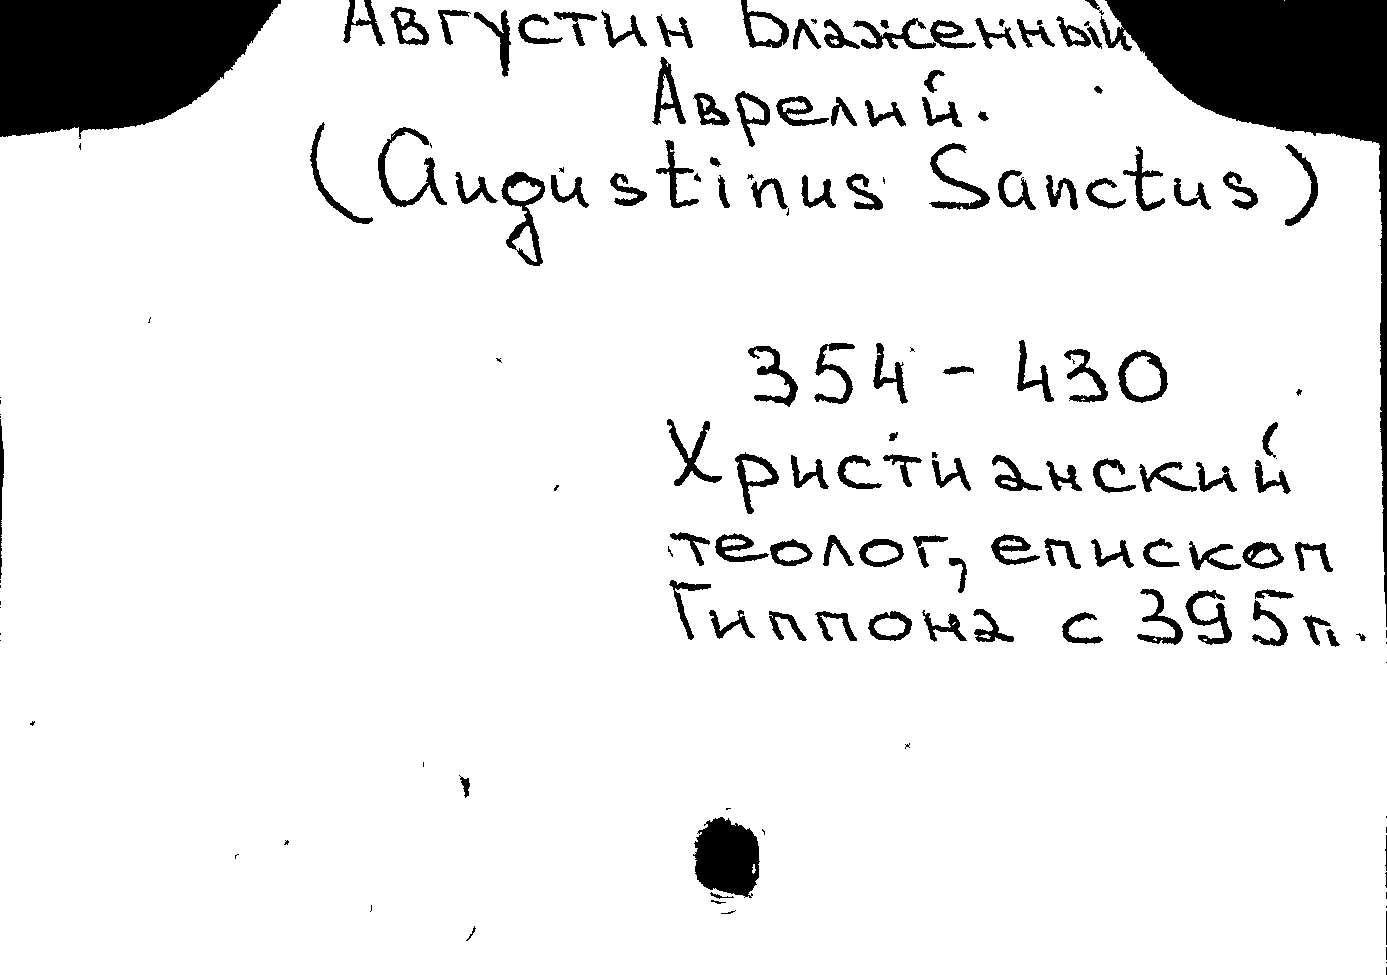 Августин Блаженный
Аврелий.
(Augustinus Sanctus)
354 - 430
Христианский
теолог, епископ
Гиппона с 395 г.